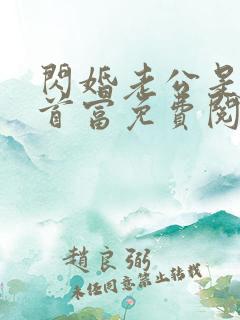 閃婚老公是
首富免費閱
趙良弼
未經同意禁止轉載